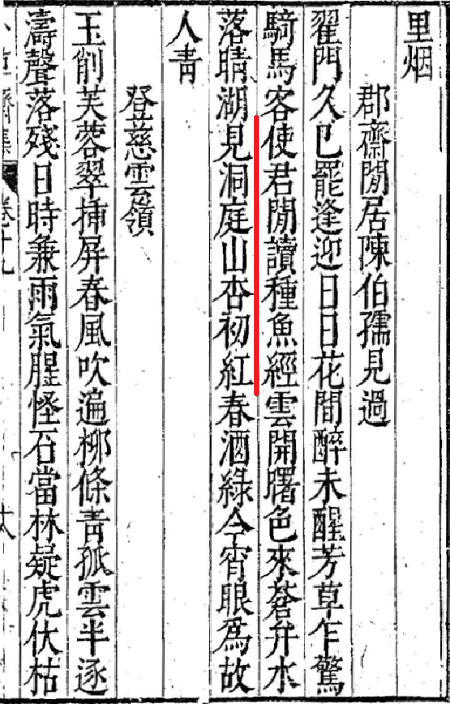 里烟
郡齋閒居陳伯孺見過
翟門久已罷逢迎日日花間醉未醒芳草乍驚
騎馬客使君閒讀種魚經雲開曙色來蒼弁水
落晴湖見洞庭山杏初紅春酒綠今宵眼爲故
人青
登慈雲嶺
玉削芙蓉翠揷屏春風吹遍柳條青孤雲半逐
濤聲落殘日時兼雨氣腥怪石當林疑虎伏枯
卷十九